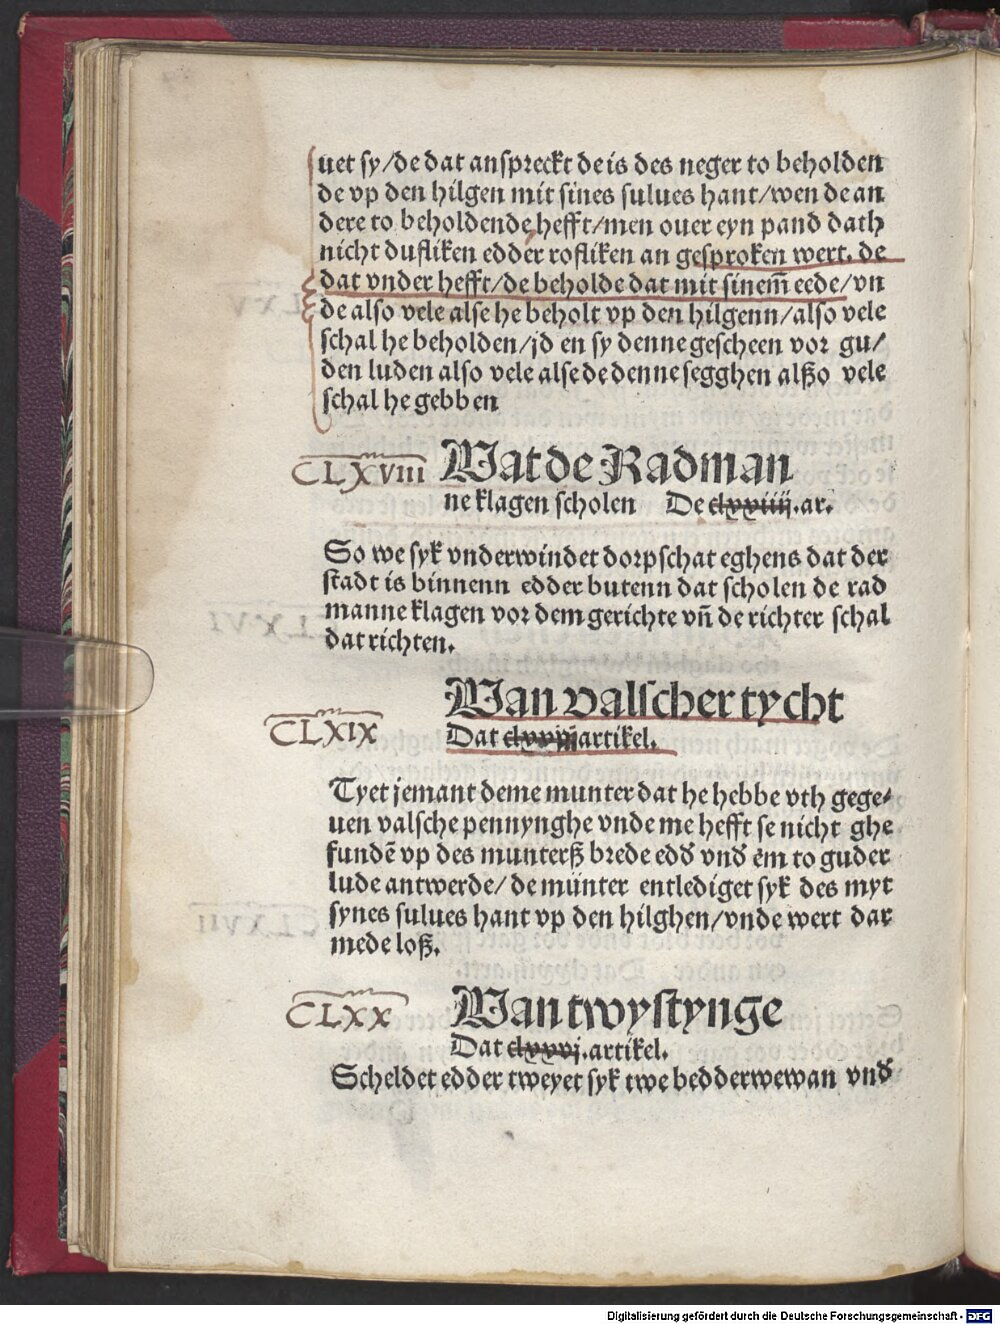 uet sy/de dat anspreckt de is des neger to beholden
de vp den hilgen mit sines sulues hant/wen de an
dere to beholdende hefft/men ouer eyn pand dath
nicht dufliken edder rofliken an gesproken wert. de
dat vnder hefft/de beholde dat mit sinem̄ eede/vn
de also vele alse he beholt vp den hilgenn/also vele
schal he beholden/jd en sy denne gescheen vor gu/
den luden also vele alse de denne segghen alßo vele
schal he gebben
CLXVIII Wat de Radman
ne klagen scholen De .ar.
So we syk vnderwindet dorpschat eghens dat der
stadt is binnenn edder butenn dat scholen de rad
manne klagen vor dem gerichte vn̄ de richter schal
dat richten.
Van valscher tycht
CLXIX Dat artikel.
Tyet jemant deme munter dat he hebbe vth gege⸗
uen valsche pennynghe vnde me hefft se nicht ghe
fundē vp des munterß brede edd' vnd' em to guder
lude antwerde/de munter entlediget syk des myt
synes sulues hant vp den hilghen/vnde wert dar
mede loß.
CLXX Van twystynge
Dat clxxxj.artikel.
Scheldet edder tweyet syk twe bedderwewan vnd'
Digitalisierung gefördert durch die Deutsche Forschungsgemeinschaft - DFG